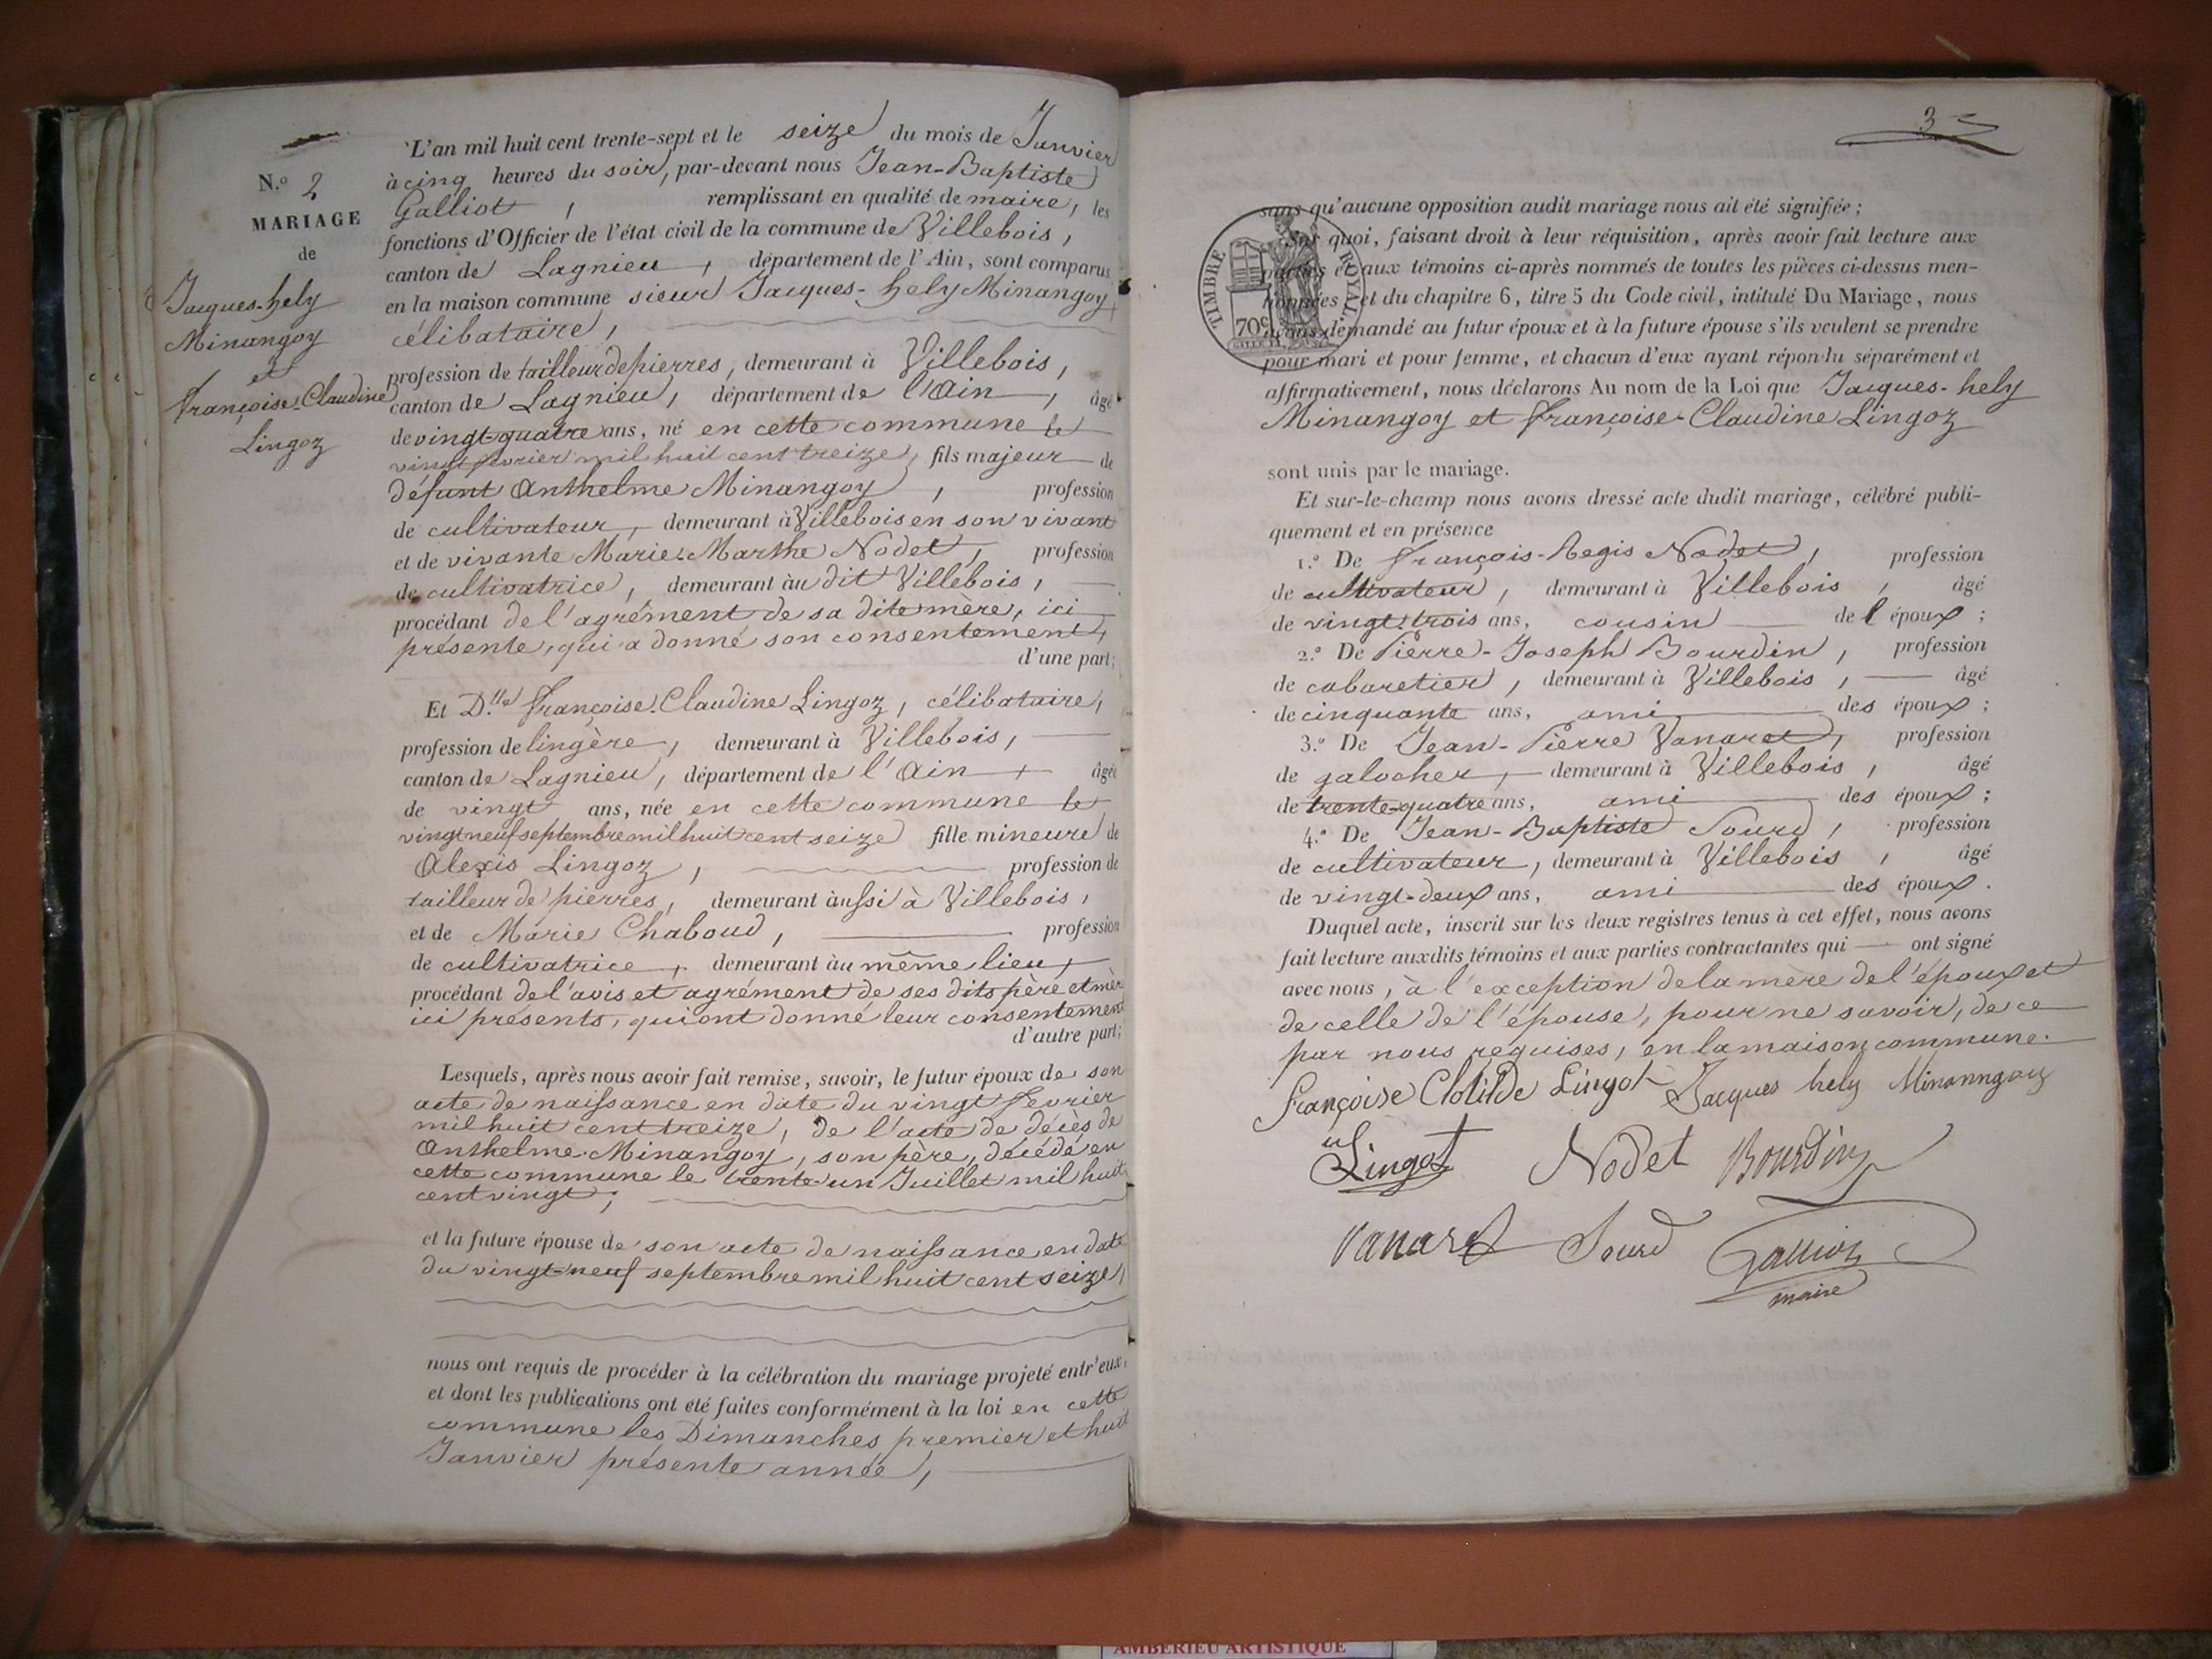 N.o 2
MARIAGE
de
Jacques-hely
Minangoy
et
françoise-Claudine
Lingoz
L'an mil huit cent trente-sept et le seize du mois de Janvier
à cinq heures du soir, par-devant nous Jean-Baptiste
Galliot, remplissant en qualité de maire, les
fonctions d'Officier de l'état civil de la commune de Villebois,
canton de Lagnieu, département de l'Ain, sont comparus
en la maison commune sieur Jacques-hely Minangoy,
célibataire,
profession de tailleur de pierres, demeurant à Villebois,
canton de Lagnieu, département de l'Ain, âgé
de vingt-quatre ans, né en cette commune le
vingt fevrier mil huit cent treize, fils majeur de
défunt Anthelme Minangoy, profession
de cultivateur, demeurant à Villebois en son vivant
et de vivante Marie-Marthe Nodet, profession
de cultivatrice, demeurant àu dit Villebois,
procédant de l'agrément de sa dite mère, ici
présente, qui a donné son consentement,
d'une part;
Et D.lle françoise-Claudine Lingoz, célibataire,
profession de lingère, demeurant à Villebois,
canton de Lagnieu, département de l'Ain, âgée
de vingt ans, née en cette commune le
vingt neuf septembre mil huit cent seize fille mineure de
Alexis Lingoz, profession de
tailleur de pierres, demeurant àussi à Villebois,
et de Marie Chaboud, profession
de cultivatrice, demeurant àu même lieu,
procédant de l'avis et agrément de ses dits père et mère
ici présents, qui ont donné leur consentement
d'autre part;
Lesquels, après nous avoir fait remise, savoir, le futur époux de son
acte de naissance en date du vingt fevrier
mil huit cent treize, de l'acte de décès de
Anthelme Minangoy, son père, décédé en
cette commune le trente un Juillet mil huit
cent vingt;
et la future épouse de son acte de naissance en date
du vingt-neuf septembre mil huit cent seize,
nous ont requis de procéder à la célébration du mariage projeté entr'eux,
et dont les publications ont été faites conformément à la loi en cette
commune les Dimanches premier et huit
Janvier présente année,
3
TIMBRE ROYAL
70c
sans qu'aucune opposition audit mariage nous ait été signifiée;
Sur quoi, faisant droit à leur réquisition, après avoir fait lecture aux
parties et aux témoins ci-après nommés de toutes les pièces ci-dessus men-
tionnées et du chapitre 6, titre 5 du Code civil, intitulé Du Mariage, nous
avons demandé au futur époux et à la future épouse s'ils veulent se prendre
pour mari et pour femme, et chacun d'eux ayant répondu séparément et
affirmativement, nous déclarons Au nom de la Loi que Jacques-hely
Minangoy et françoise-Claudine Lingoz
sont unis par le mariage.
Et sur-le-champ nous avons dressé acte dudit mariage, célébré publi-
quement et en présence
1.o De françois-Regis Nodet, profession
de cultivateur, demeurant à Villebois, âgé
de vingt-trois ans, cousin de l'époux;
2.o De Pierre-Joseph Bourdin, profession
de cabaretier, demeurant à Villebois, âgé
de cinquante ans, ami des époux;
3.o De Jean-Pierre Vanaret, profession
de galocher, demeurant à Villebois, âgé
de trente-quatre ans, ami des époux;
4.o De Jean-Baptiste Sourd, profession
de cultivateur, demeurant à Villebois, âgé
de vingt-deux ans, ami des époux.
Duquel acte, inscrit sur les deux registres tenus à cet effet, nous avons
fait lecture auxdits témoins et aux parties contractantes qui ont signé
avec nous, à l'exception de la mère de l'époux et
de celle de l'épouse, pour ne savoir, de ce
par nous requises, en la maison commune.
françoise Clotilde Lingot Jacques hely Minanngoy
Lingot Nodet Bourdin
Vanaret Sourd Galliot
maire
AMBERIEU ARTISTIQUE